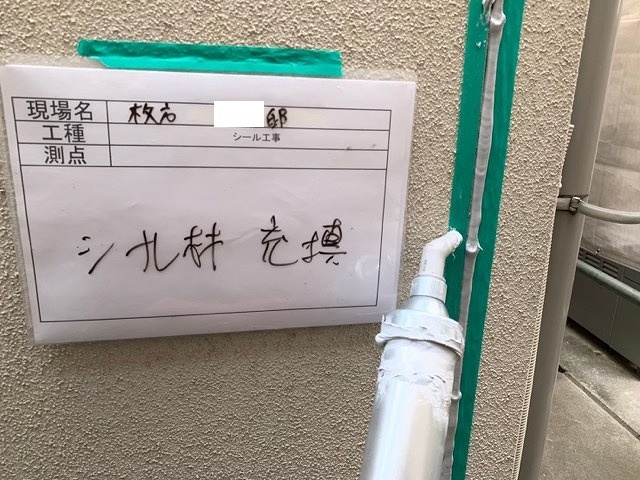 現場名 枚方 邸
工種 シール工事
測点
シール材 充填